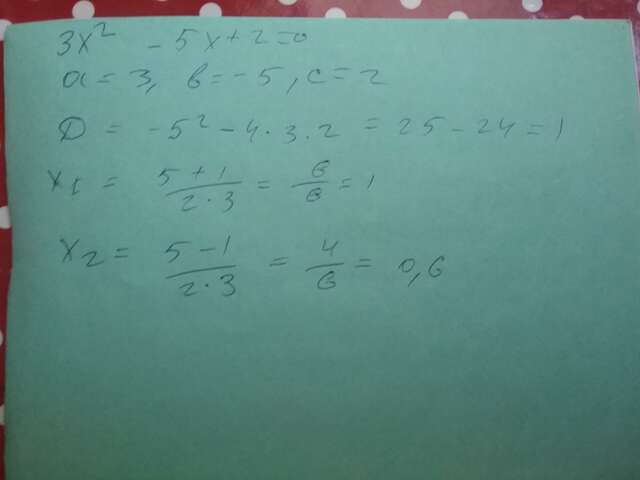 3x² - 5x + 2 = 0
a = 3, b = -5, c = 2
D = -5² - 4·3·2 = 25 - 24 = 1
x₁ = (5 + 1)/(2·3) = 6/6 = 1
x₂ = (5 - 1)/(2·3) = 4/6 = 0,6